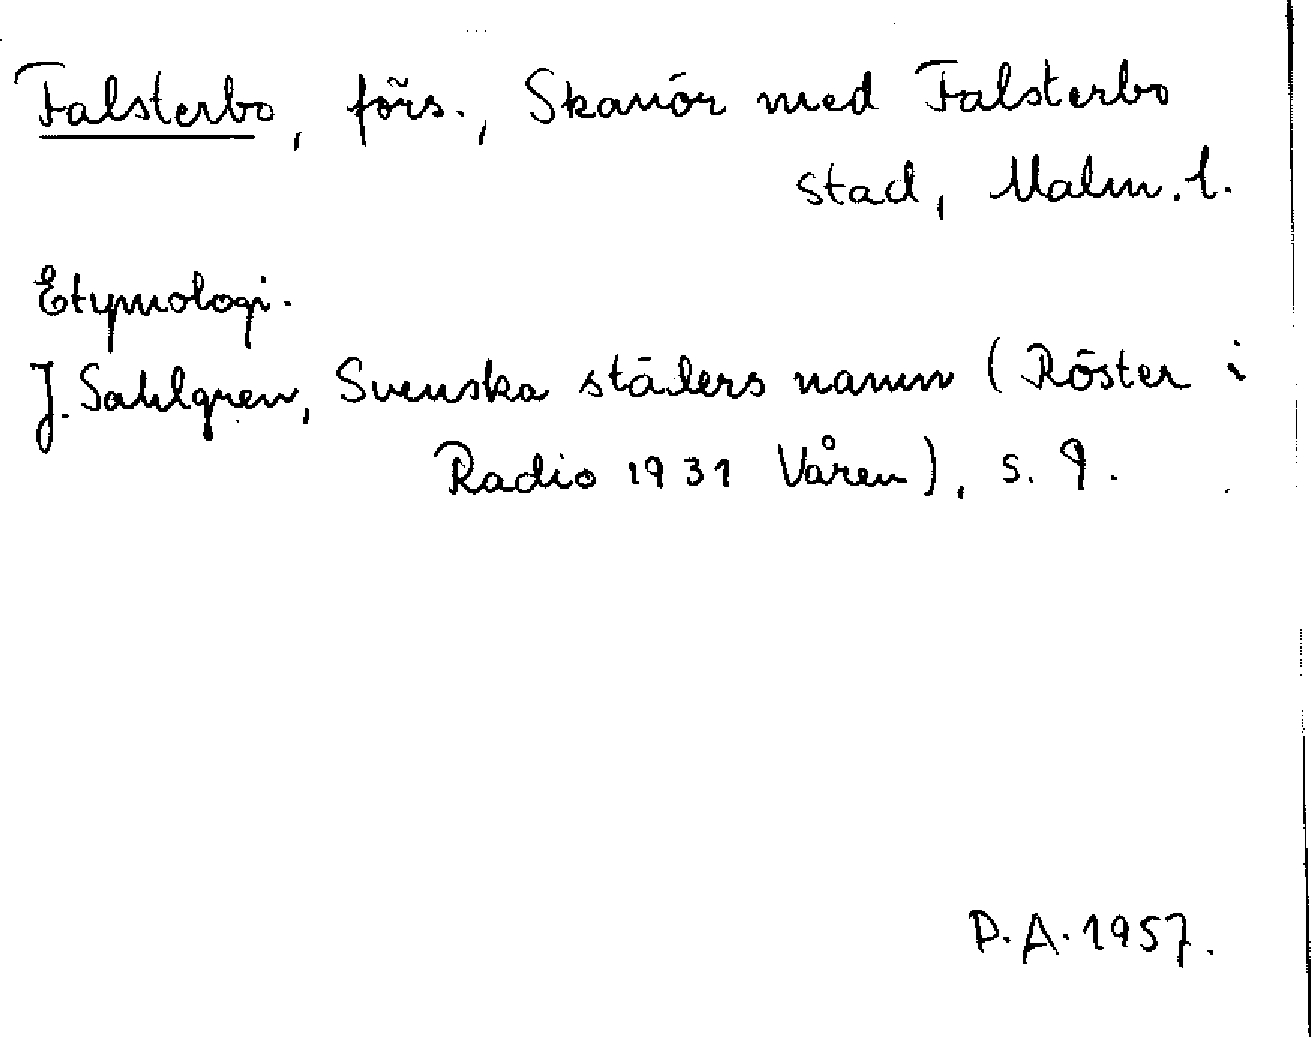 Falsterbo, förs., Skanör med Falsterbo
stad, Malm. l.
Etymologi.
J. Sahlgren, Svenska städers namn (Röster i
Radio 1931 Våren), s. 9.
D. A. 1957.